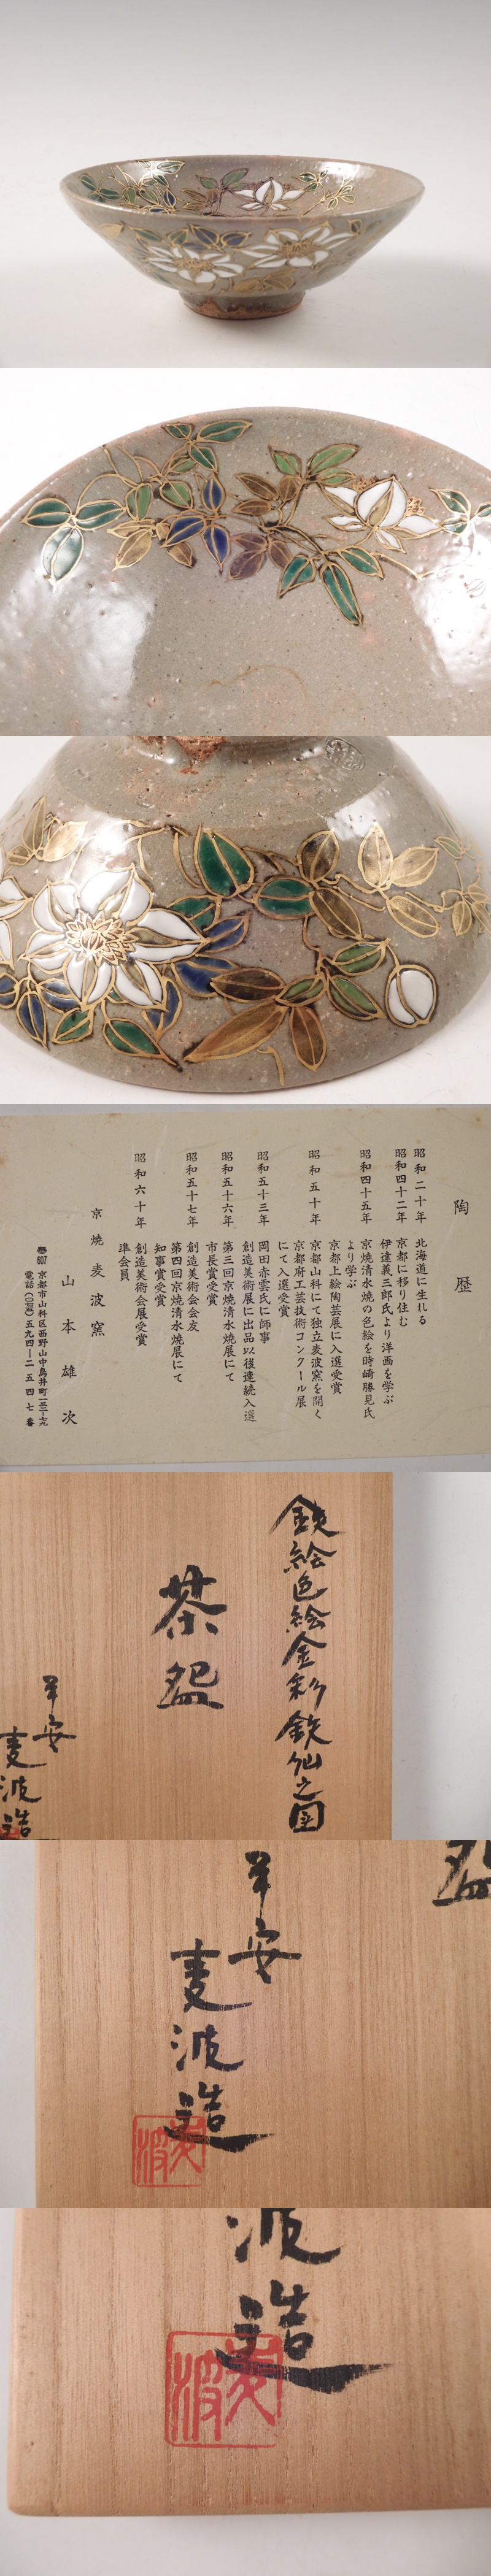 陶歴
昭和二十年 北海道に生れる
昭和四十二年 京都に移り住む
伊達義三郎氏より洋画を学ぶ
昭和四十五年 京焼清水焼の色絵を時崎勝見氏
より学ぶ
京都上絵陶芸展に入選受賞
昭和五十年 京都山科にて独立麦波窯を開く
京都府工芸技術コンクール展
にて入選受賞
昭和五十三年 岡田赤雲氏に師事
創造美術展に出品以後連続入選
昭和五十六年 第三回京焼清水焼展にて
市長賞受賞
昭和五十七年 創造美術会会友
第四回京焼清水焼展にて
知事賞受賞
昭和六十年 創造美術会展受賞
準会員
京焼 麦波窯
山本雄次
〒607 京都市山科区西野山中鳥井町
電話(〇七五)五九四―二五四七番
鉄絵色絵金彩鉄仙之図
茶盌
平安
麦波造
平安
麦波造
麦波
波造
麦波